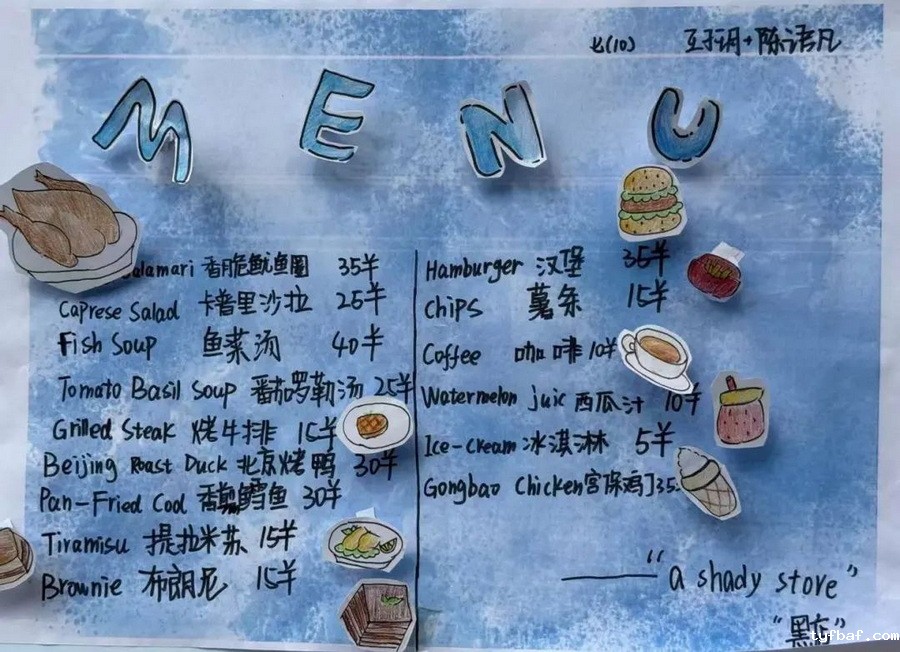 七(10) 陈语凡
MENU
alamari 香脆鱿鱼圈 35半
Caprese Salad 卡普里沙拉 25半
Fish Soup 鱼菜汤 40半
Tomato Basil Soup 番茄罗勒汤 25半
Grilled Steak 烤牛排 15半
Beijing Roast Duck 北京烤鸭 30半
Pan-Fried Cod 香煎鳕鱼 30半
Tiramisu 提拉米苏 15半
Brownie 布朗尼 15半
Hamburger 汉堡 35半
Chips 薯条 15半
Coffee 咖啡 10半
Watermelon juic 西瓜汁 10半
Ice-cream 冰淇淋 5半
Gongbao Chicken 宫保鸡丁 35
——“a shady store”
“黑店”
tyfbaf.com